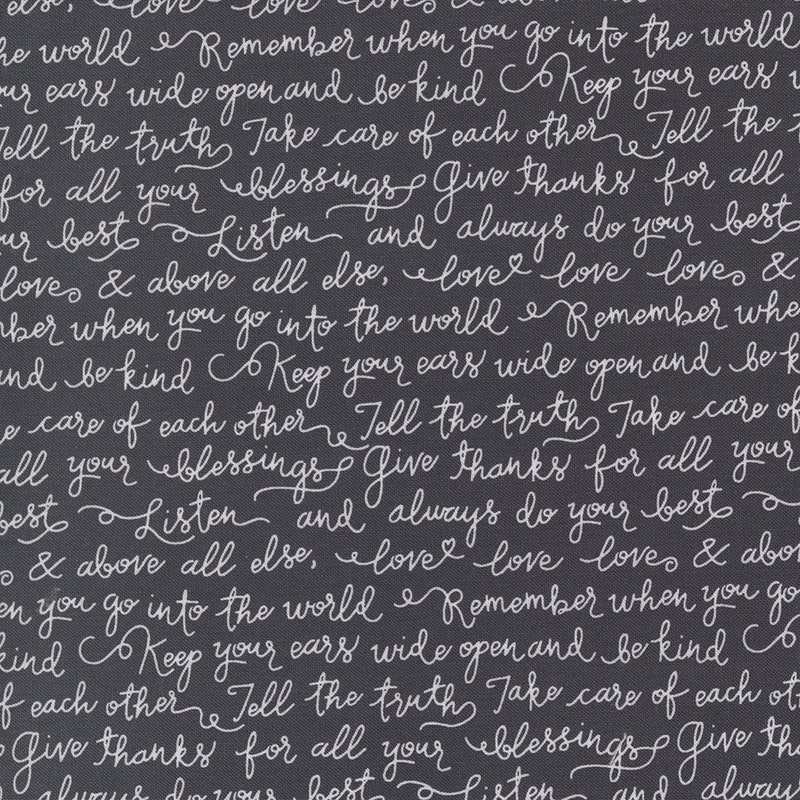 else, love love love & above all
the world Remember when you go into the world
your ears wide open and be kind Keep your ears
Tell the truth Take care of each other Tell the
for all your blessings Give thanks for all
your best Listen and always do your best
love & above all else, love love love &
mber when you go into the world Remember whe
and be kind Keep your ears wide open and be k
e care of each other Tell the truth Take care of
all your blessings Give thanks for all your
best Listen and always do your best
& above all else, love love love & abo
en you go into the world Remember when you go
kind Keep your ears wide open and be kind
of each other Tell the truth Take care of each ot
Give thanks for all your blessings Give tha
always do your best Listen and alwa